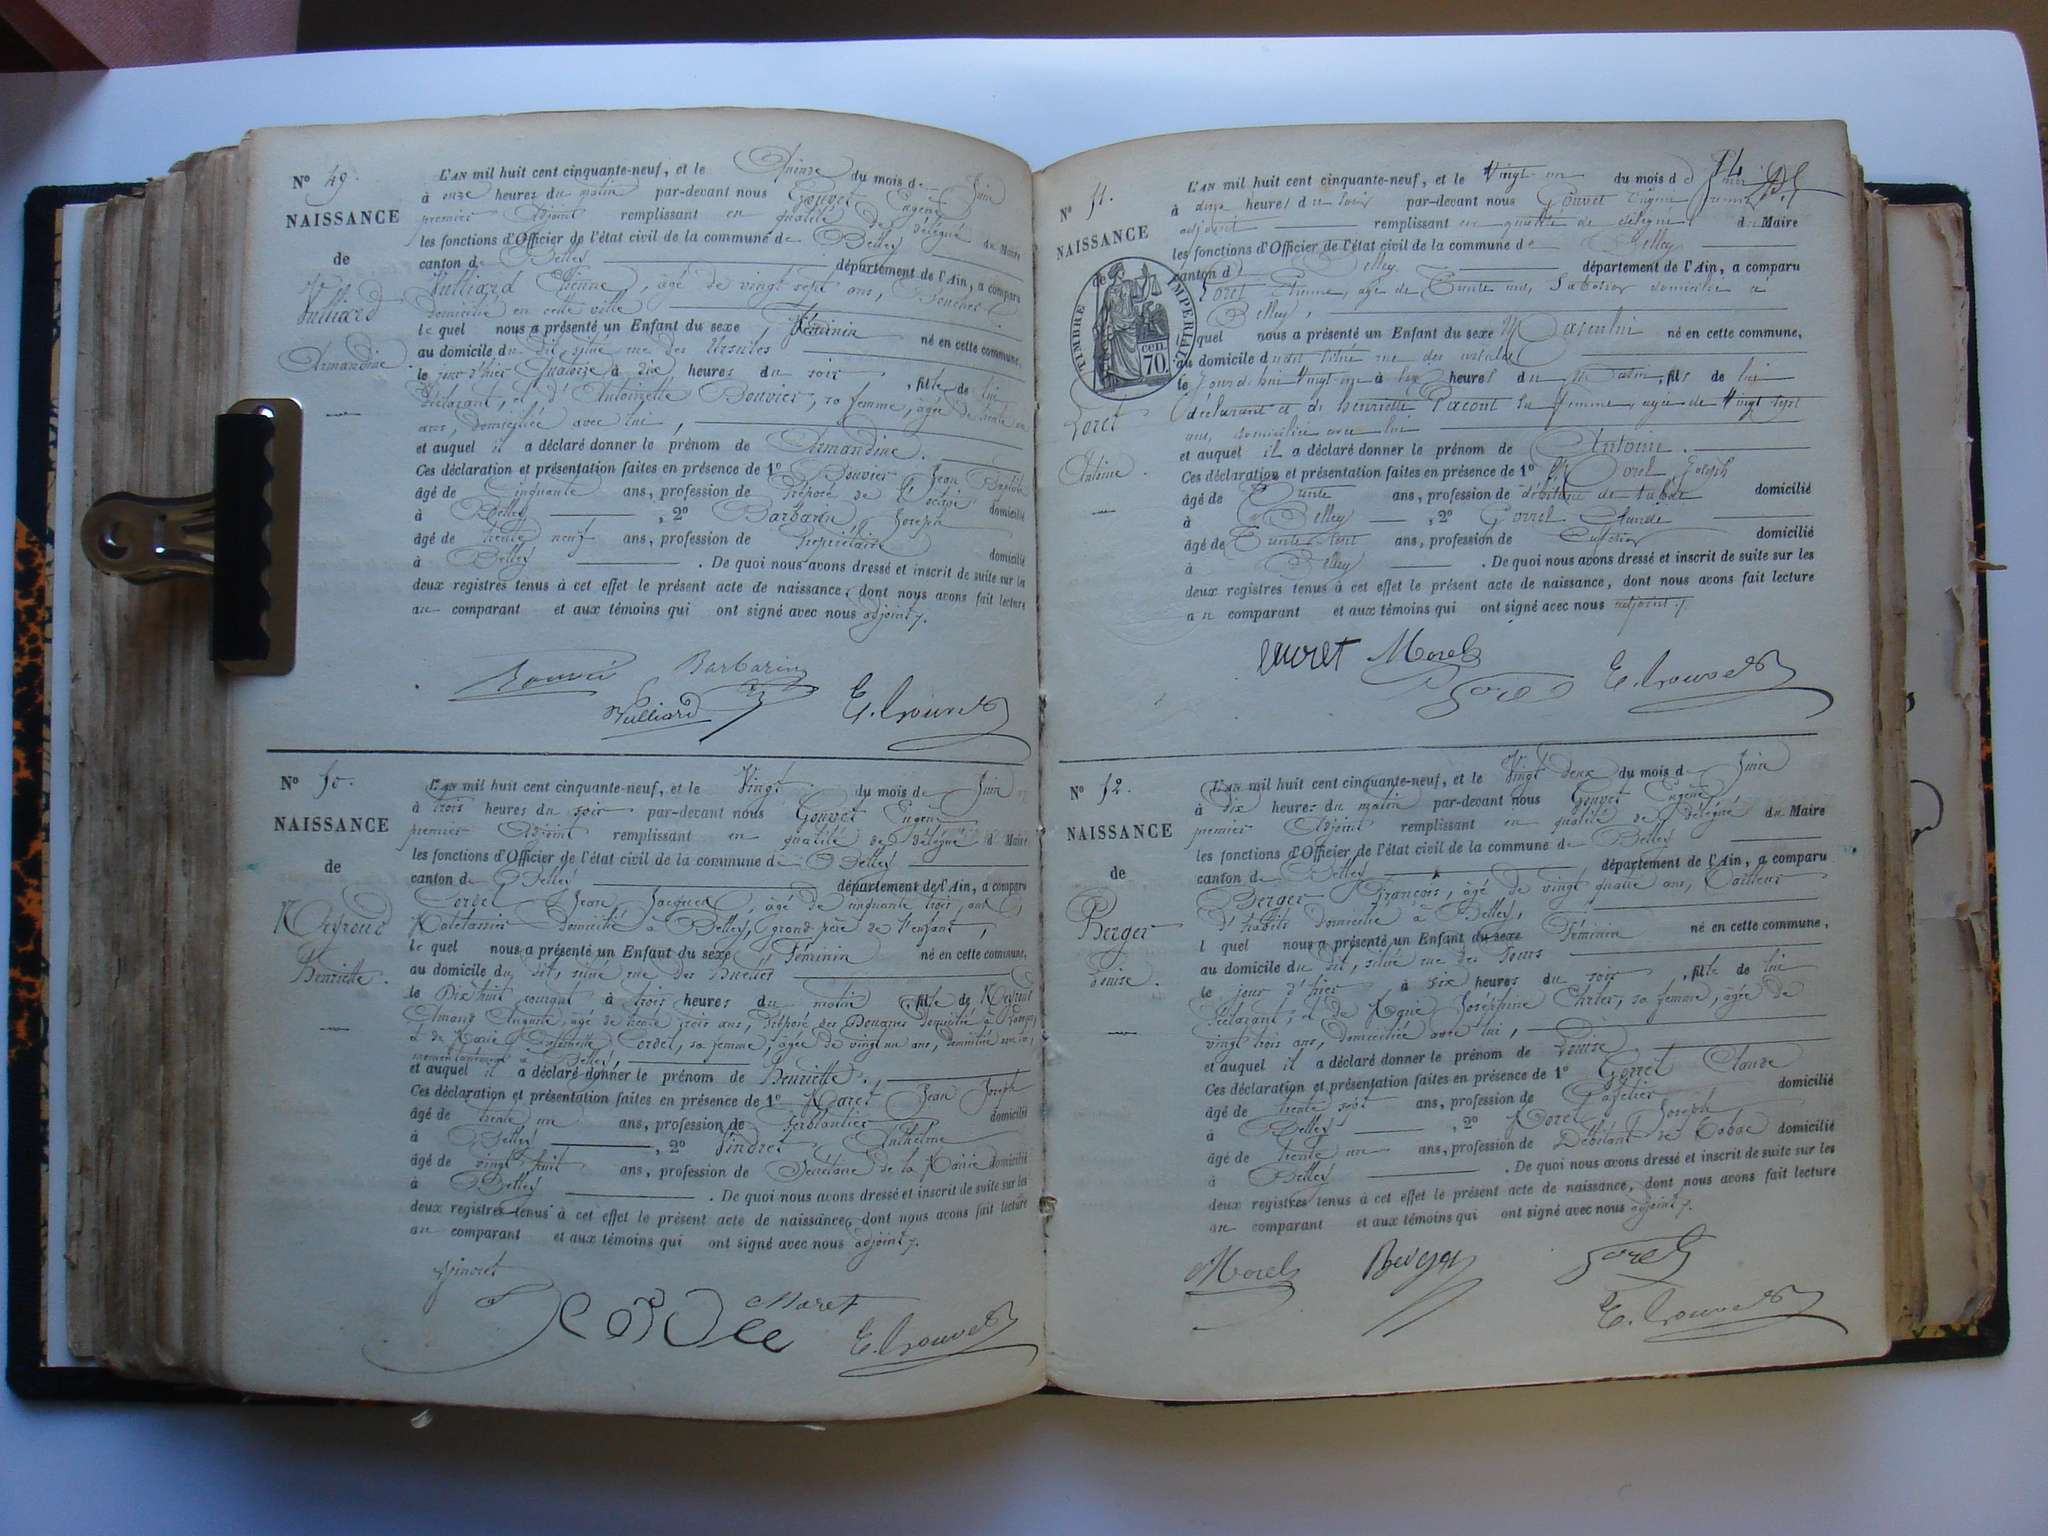 N° 49.
NAISSANCE
de
Vulliard
Armandine.
L'AN mil huit cent cinquante-neuf, et le Quinze du mois de Juin
à onze heures du matin par-devant nous Gouvet Eugène
premier Adjoint remplissant en qualité de délégué du Maire
les fonctions d'Officier de l'état civil de la commune de Belley
canton de Belley département de l'Ain, a comparu
Vulliard Etienne, âgé de vingt sept ans, Boucher
domicilié en cette ville
le quel nous a présenté un Enfant du sexe Féminin né en cette commune,
au domicile du dit, situé rue des Ursules
le jour d'hier Quatorze à dix heures du soir, fille de lui
déclarant, et d'Antoinette Bouvier, sa femme, âgée de trente un
ans, domiciliée avec lui,
et auquel il a déclaré donner le prénom de Armandine.
Ces déclaration et présentation faites en présence de 1° Bouvier Jean Baptiste
âgé de Cinquante ans, profession de Préposé de l'octroi domicilié
à Belley, 2° Barbarin Joseph
âgé de trente neuf ans, profession de Propriétaire domicilié
à Belley. De quoi nous avons dressé et inscrit de suite sur les
deux registres tenus à cet effet le présent acte de naissance, dont nous avons fait lecture
au comparant et aux témoins qui ont signé avec nous adjoint.
Bouvier Barbarin
Vulliard E. Gouvet
N° 50.
NAISSANCE
de
Meyroud
Henriette.
L'AN mil huit cent cinquante-neuf, et le Vingt du mois de Juin
à trois heures du soir par-devant nous Gouvet Eugène
premier Adjoint remplissant en qualité de délégué du Maire
les fonctions d'Officier de l'état civil de la commune de Belley
canton de Belley département de l'Ain, a comparu
Cordel Jean Jacques, âgé de cinquante trois ans,
Matelassier domicilié à Belley, grand père de l'enfant,
le quel nous a présenté un Enfant du sexe Féminin né en cette commune,
au domicile du dit, situé rue des
le Dix huit courant à trois heures du matin, fille de
Amand Auguste, âgé de trente trois ans, Préposé des Douanes domicilié à
et de Marie Antoinette Cordel, sa femme, âgée de vingt un ans, domiciliée avec lui,
momentanément à Belley,
et auquel il a déclaré donner le prénom de Henriette.
Ces déclaration et présentation faites en présence de 1° Maret Jean Joseph
âgé de trente un ans, profession de Ferblantier domicilié
à Belley, 2° Vindret Anthelme
âgé de vingt huit ans, profession de Secrétaire de la Mairie domicilié
à Belley. De quoi nous avons dressé et inscrit de suite sur les
deux registres tenus à cet effet le présent acte de naissance, dont nous avons fait lecture
au comparant et aux témoins qui ont signé avec nous adjoint.
Vindret
Maret
E. Gouvet
14
N° 51.
NAISSANCE
de
TIMBRE IMPERIAL
cen. 70.
Loret
Antoine.
L'AN mil huit cent cinquante-neuf, et le Vingt un du mois de Juin
à deux heures du soir par-devant nous Gouvet Eugène premier
adjoint remplissant en qualité de délégué du Maire
les fonctions d'Officier de l'état civil de la commune de Belley
canton de Belley département de l'Ain, a comparu
Loret Etienne, âgé de Trente ans, Sabotier domicilié à
Belley,
le quel nous a présenté un Enfant du sexe Masculin né en cette commune,
au domicile du dit situé rue des
le jourd'hui Vingt un à six heures du matin, fils de lui
déclarant et de henriette Pacout sa femme, agée de Vingt sept
ans, domiciliée avec lui
et auquel il a déclaré donner le prénom de Antoine.
Ces déclaration et présentation faites en présence de 1° Morel Joseph
âgé de Trente ans, profession de débitant de tabac domicilié
à Belley, 2° Gorrel Claude
âgé de Trente sept ans, profession de domicilié
à Belley. De quoi nous avons dressé et inscrit de suite sur les
deux registres tenus à cet effet le présent acte de naissance, dont nous avons fait lecture
au comparant et aux témoins qui ont signé avec nous adjoint.
Morel
Gorel E. Gouvet
N° 52.
NAISSANCE
de
Berger
Louise.
L'AN mil huit cent cinquante-neuf, et le Vingt deux du mois de Juin
à dix heures du matin par-devant nous Gouvet Eugène
premier Adjoint remplissant en qualité de délégué du Maire
les fonctions d'Officier de l'état civil de la commune de Belley
canton de Belley département de l'Ain, a comparu
Berger François, âgé de vingt quatre ans, Tailleur
d'habits domicilié à Belley,
l quel nous a présenté un Enfant du sexe Féminin né en cette commune,
au domicile du dit, situé rue des Tours
le jour d'hier, à six heures du soir, fille de lui
déclarant, et de Marie Joséphine, sa femme, âgée de
vingt trois ans, domiciliée avec lui,
et auquel il a déclaré donner le prénom de Louise
Ces déclaration et présentation faites en présence de 1° Gorrel Claude
âgé de trente sept ans, profession de Cafetier domicilié
à Belley, 2° Morel Joseph
âgé de trente un ans, profession de Débitant de Tabac domicilié
à Belley. De quoi nous avons dressé et inscrit de suite sur les
deux registres tenus à cet effet le présent acte de naissance, dont nous avons fait lecture
au comparant et aux témoins qui ont signé avec nous adjoint.
Morel Berger Gorel
E. Gouvet